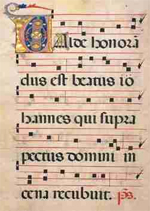 Valde honorā
dus est beatus io
hannes qui supra
pectus domini in
cena recubuit. p̄s.